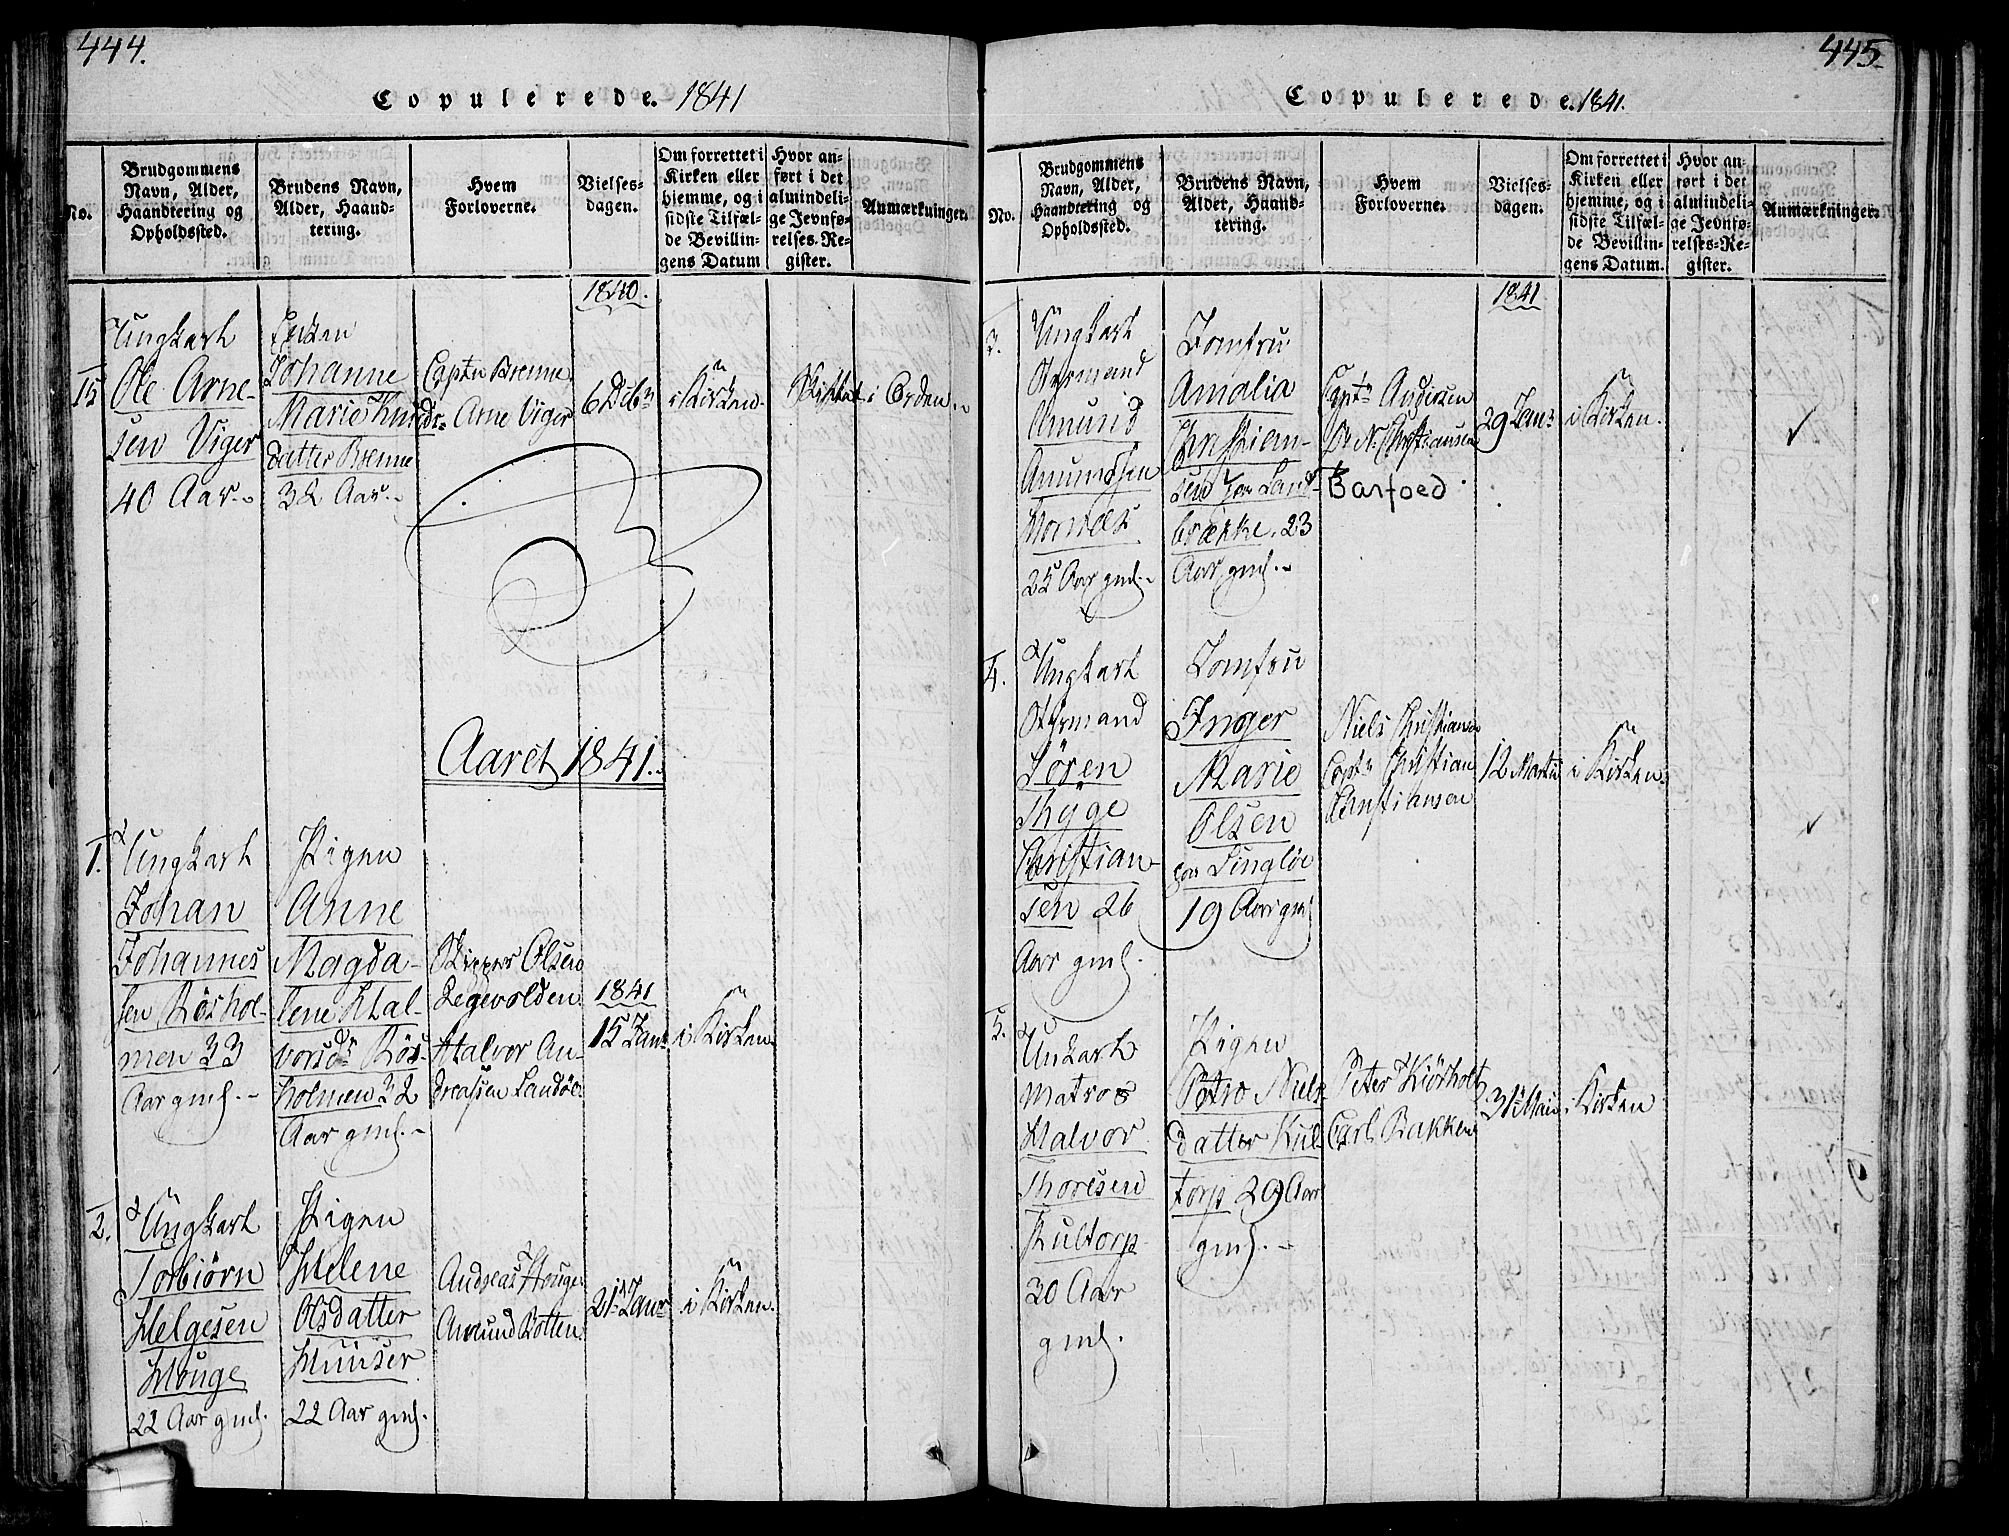 444.
Copulerede. 1841
No.
Brudgommens
Navn, Alder,
Haandtering og
Opholdssted.
Brudens Navn,
Alder, Haand-
tering.
Hvem
Forloverne.
Vielses-
dagen.
Om forrettet i
Kirken eller
hjemme, og i
sidste Tilfæl-
de Bevillin-
gens Datum
Hvor an-
ført i det
almindeli-
ge Jevnfø-
relses-Re-
gister.
Anmærkninger.
1840.
15
Ungkarl
Ole Arne-
sen Viger
40 Aar.
Enken
Johanne
Marie Knuds-
datter Brenne
Captn Brenne
Arne Viger
6 Dcbr
i Kirken.
Skiftet i Orden.
Aaret 1841.
1.
Ungkarl
Johan
Johannes
sen Röshol-
men 33
Aar gml.
Pigen
Anne
Magda-
lene Hal-
vorsdr Rös-
holmen 32
Aar gml.
Skipper Olsen
Halvor An-
dreassen Landöe
1841
15 Janr
i Kirken.
2.
Ungkarl
Torbiörn
Helgesen
Houge
22 Aar gml.
Pigen
Helene
Olsdatter
Huuser
22 Aar gml.
Andreas Houge
Amund Rotten
21 Janr
i Kirken.
445.
Copulerede. 1841.
No.
Brudgommens
Navn, Alder,
Haandtering og
Opholdssted.
Brudens Navn,
Alder, Haand-
tering.
Hvem
Forloverne.
Vielses-
dagen.
Om forrettet i
Kirken eller
hjemme, og i
sidste Tilfæl-
de Bevillin-
gens Datum.
Hvor an-
ført i det
almindeli-
ge Jevnfø-
relses-Re-
gister.
Anmærkninger.
1841
3.
Ungkarl
Styrmand
Amund
Amundsen
25 Aar gml.
Jomfru
Amalia
Christian-
sen fra Land-
brække. 23
Aar gml.
Captn Andersen
Christiansen
Barfoed
29 Janr
i Kirken.
4.
Ungkarl
Styrmand
Sören
Thyge
Christian-
sen 26
Aar gml.
Jomfru
Inger
Marie
Olsen
fra Lingløe
19 Aar gml
Niels Christiansen
Captn Christian
Christiansen
12 Martii
i Kirken.
5.
Unkarl
Matros
Halvor
Thoresen
Kultorp
30 Aar
gml.
Pigen
Petro Niels-
datter Kul-
torp 29 Aar
gml.
Peter Kiörholt
Carl Bakken
31 Maii
i Kirken